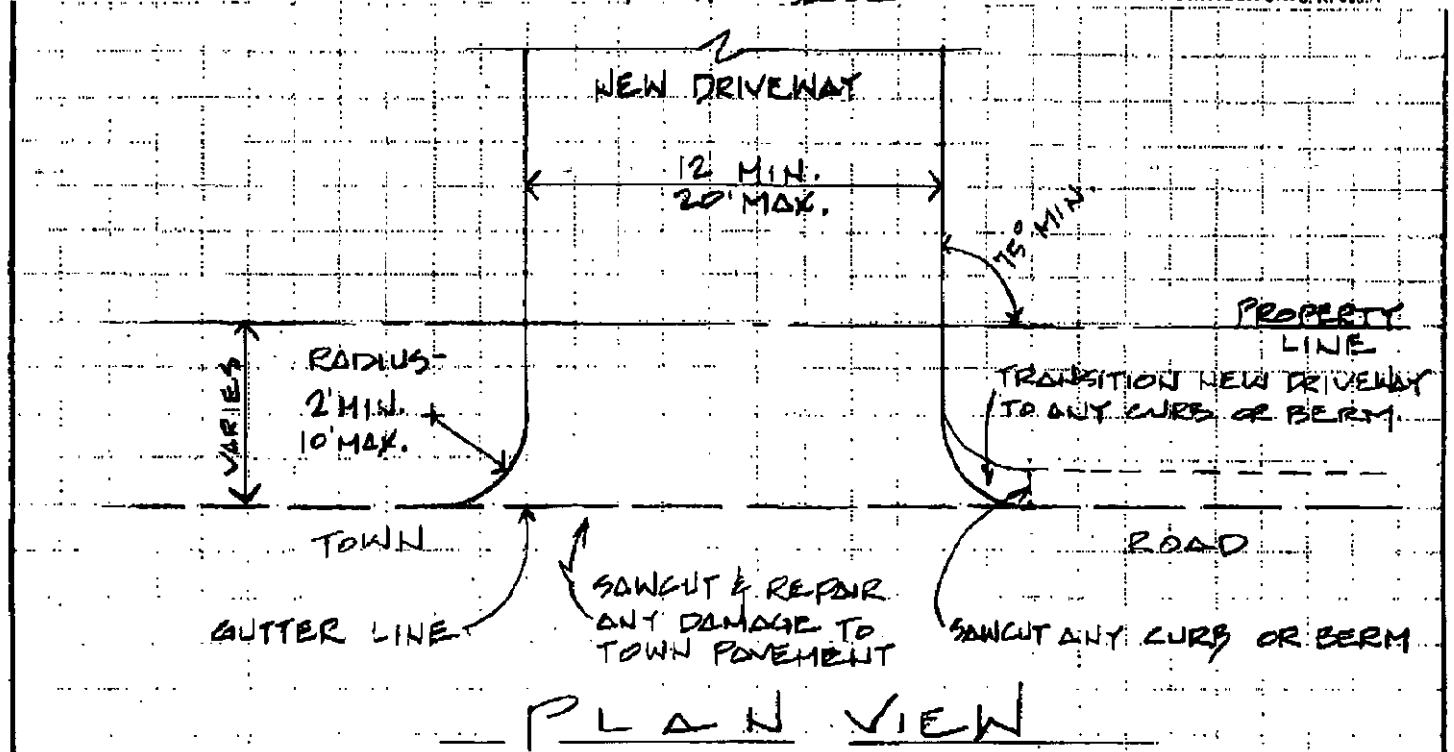 NEW DRIVEWAY
12' MIN.
20' MAX.
75° MIN.
PROPERTY
LINE
VARIES
RADIUS-
2' MIN.
10' MAX.
TRANSITION NEW DRIVEWAY
TO ANY CURB OR BERM.
TOWN
ROAD
GUTTER LINE
SAWCUT & REPAIR
ANY DAMAGE TO
TOWN PAVEMENT
SAWCUT ANY CURB OR BERM
PLAN VIEW